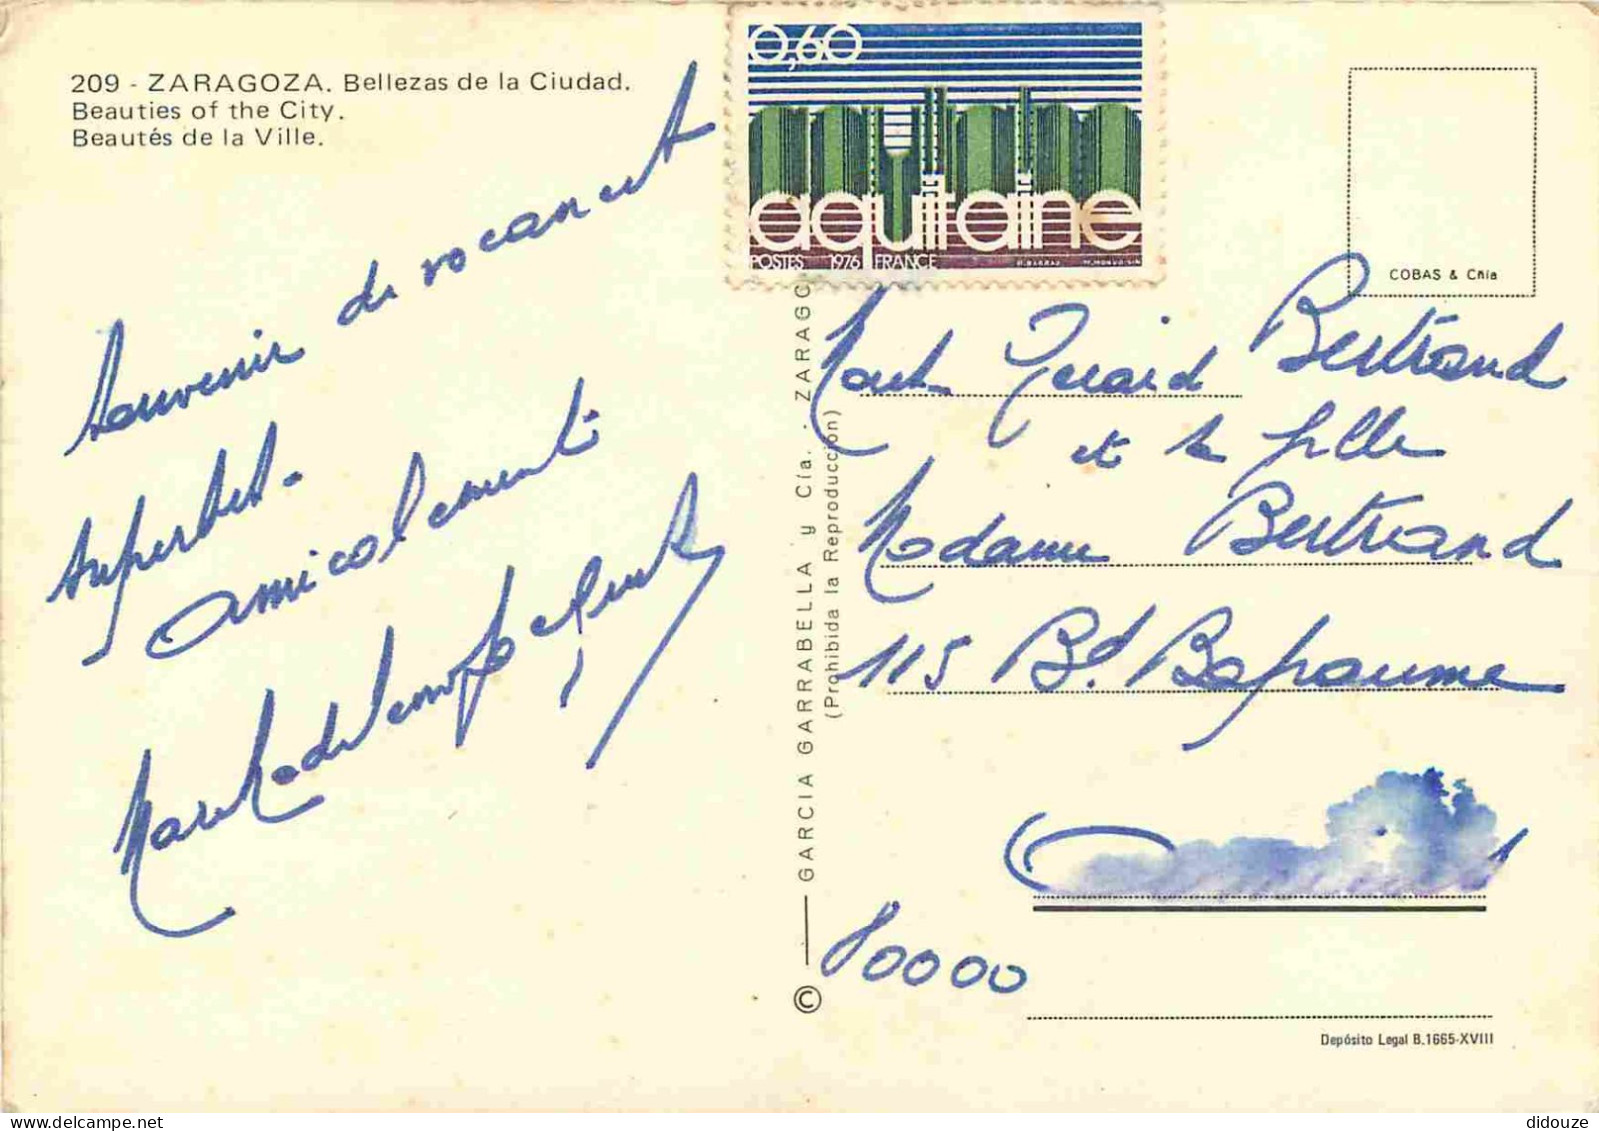 209 - ZARAGOZA. Bellezas de la Ciudad.
Beauties of the City.
Beautés de la Ville.
0,60
aquitaine
POSTES 1976 FRANCE
COBAS & Cñia
Souvenir de vacances et
superbes.
amicalement
GARCIA GARRABELLA y Cía. - ZARAGO
(Prohibida la Reproducción)
©
Gérard Bertrand
et sa fille
Madame Bertrand
115 Bd. Bapaume
80000
Depósito Legal B.1665-XVIII
didouze